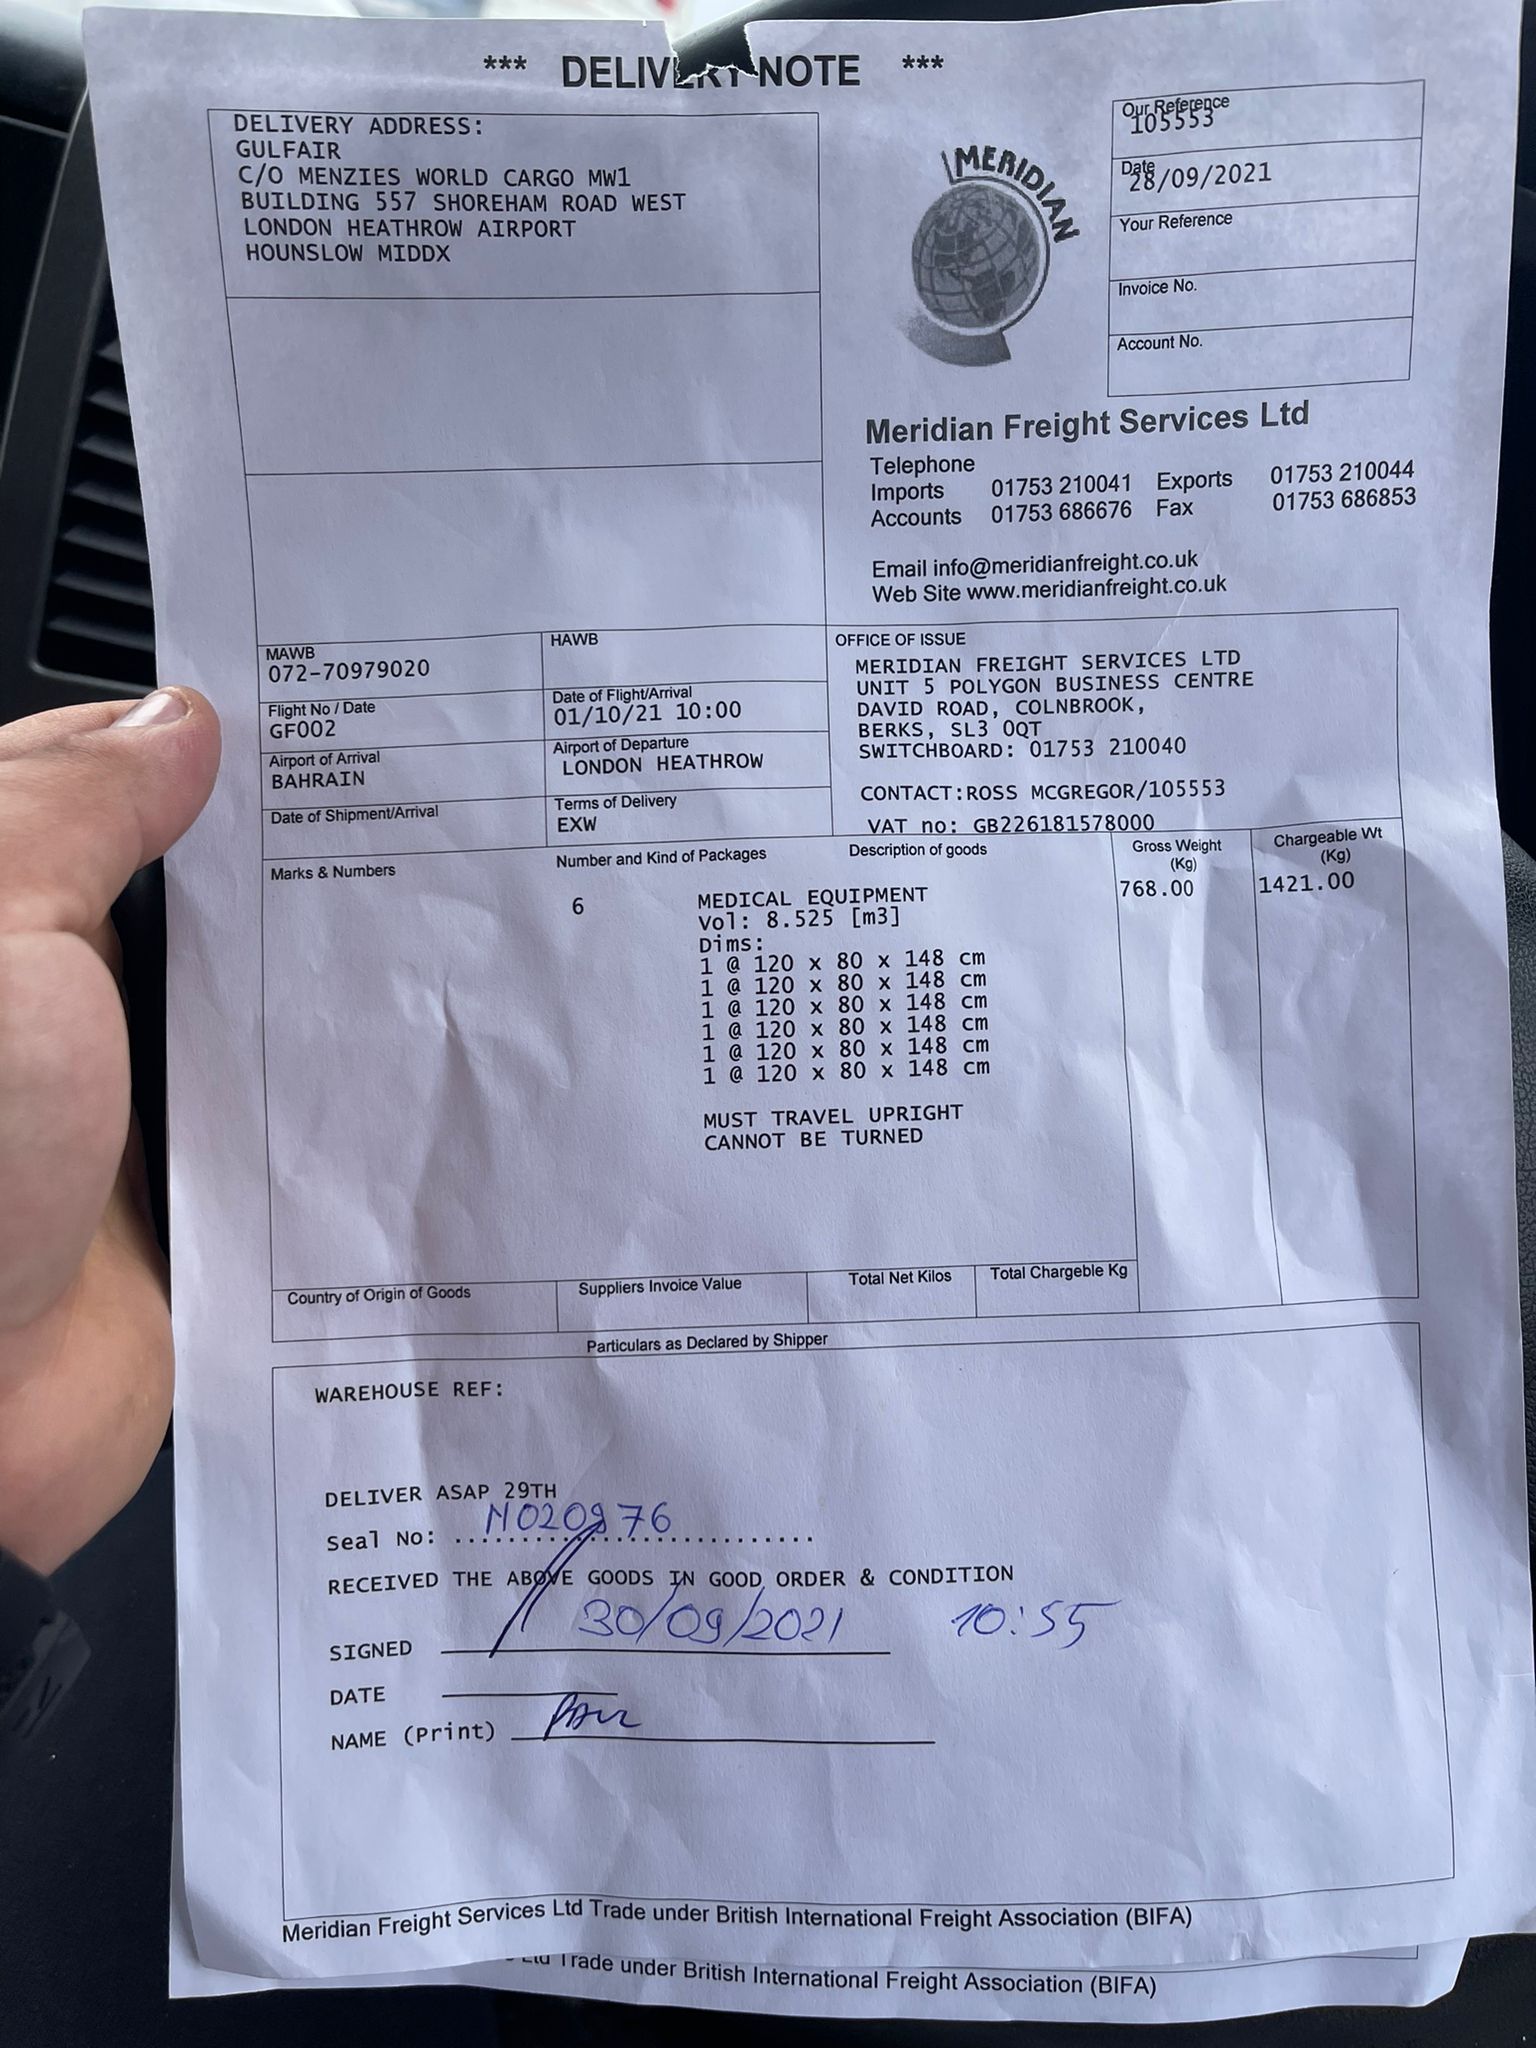 *** DELIVERY NOTE ***
DELIVERY ADDRESS:
GULFAIR
C/O MENZIES WORLD CARGO MW1
BUILDING 557 SHOREHAM ROAD WEST
LONDON HEATHROW AIRPORT
HOUNSLOW MIDDX
MERIDIAN
Our Reference
105553
Date
28/09/2021
Your Reference
Invoice No.
Account No.
Meridian Freight Services Ltd
Telephone
Imports 01753 210041 Exports 01753 210044
Accounts 01753 686676 Fax 01753 686853
Email info@meridianfreight.co.uk
Web Site www.meridianfreight.co.uk
MAWB
072-70979020
HAWB
Flight No / Date
GF002
Date of Flight/Arrival
01/10/21 10:00
Airport of Arrival
BAHRAIN
Airport of Departure
LONDON HEATHROW
Date of Shipment/Arrival
Terms of Delivery
EXW
OFFICE OF ISSUE
MERIDIAN FREIGHT SERVICES LTD
UNIT 5 POLYGON BUSINESS CENTRE
DAVID ROAD, COLNBROOK,
BERKS, SL3 0QT
SWITCHBOARD: 01753 210040
CONTACT:ROSS MCGREGOR/105553
VAT no: GB226181578000
Marks & Numbers
Number and Kind of Packages
Description of goods
Gross Weight
(Kg)
Chargeable Wt
(Kg)
6 MEDICAL EQUIPMENT 768.00 1421.00
Vol: 8.525 [m3]
Dims:
1 @ 120 x 80 x 148 cm
1 @ 120 x 80 x 148 cm
1 @ 120 x 80 x 148 cm
1 @ 120 x 80 x 148 cm
1 @ 120 x 80 x 148 cm
1 @ 120 x 80 x 148 cm
MUST TRAVEL UPRIGHT
CANNOT BE TURNED
Country of Origin of Goods
Suppliers Invoice Value
Total Net Kilos
Total Chargeble Kg
Particulars as Declared by Shipper
WAREHOUSE REF:
DELIVER ASAP 29TH
Seal No: N020976
RECEIVED THE ABOVE GOODS IN GOOD ORDER & CONDITION
SIGNED 30/09/2021 10:55
DATE
NAME (Print)
Meridian Freight Services Ltd Trade under British International Freight Association (BIFA)
Ltd Trade under British International Freight Association (BIFA)